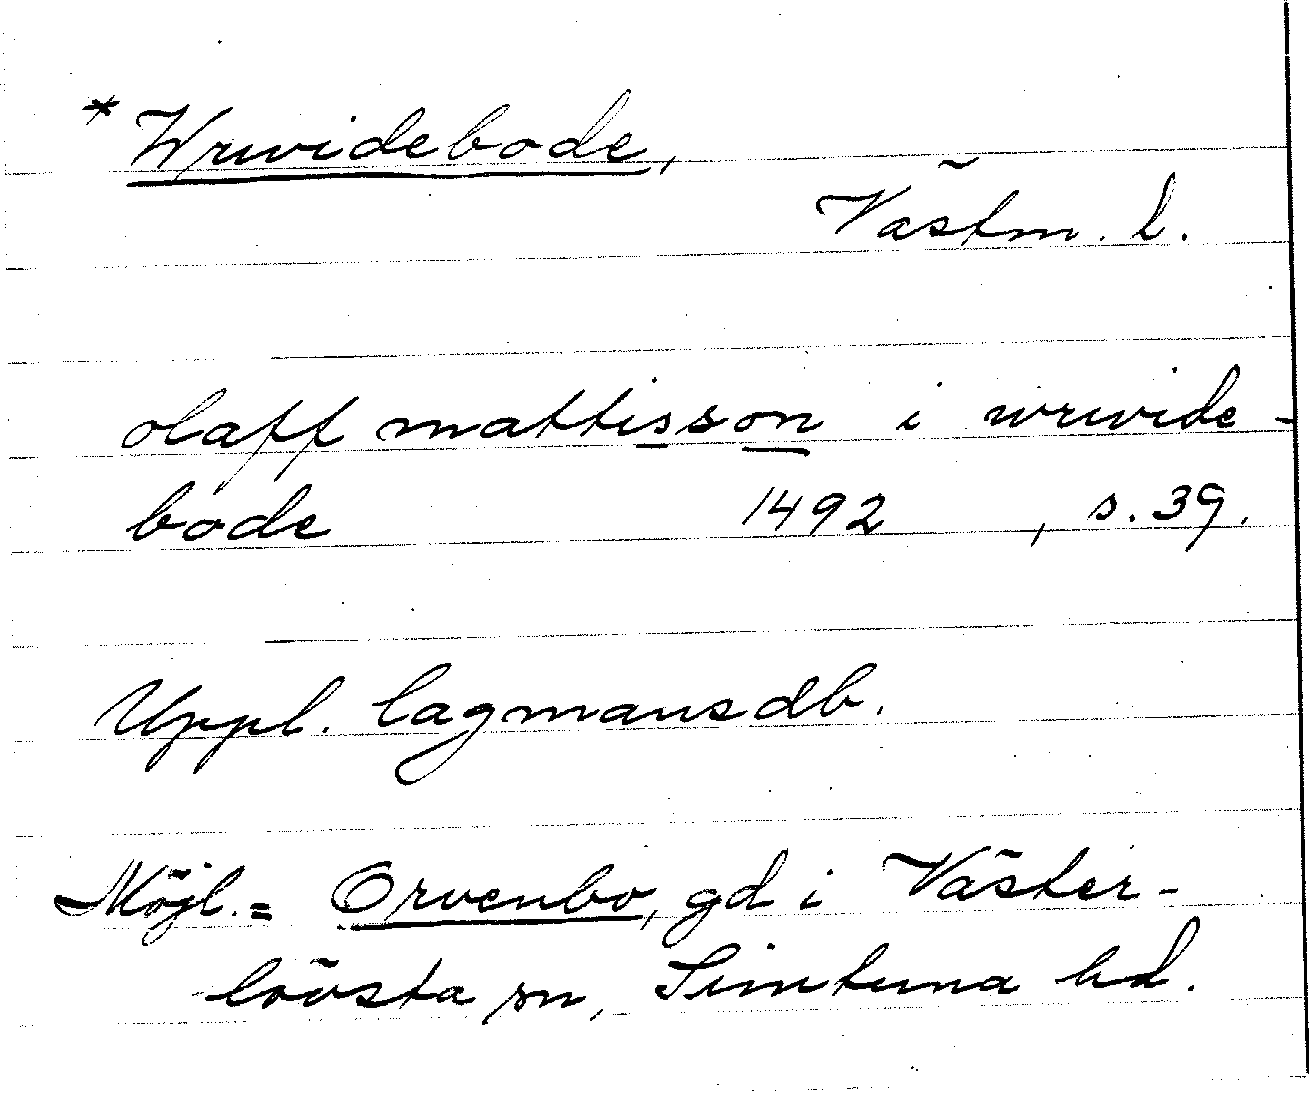 * Wrwidebode,
Västm. l.
olaff mattisson i wrwide-
bode 1492 , s. 39.
Uppl. lagmansdb.
Möjl. = Orvenbo, gd i Väster-
lövsta sn, Simtuna hd.